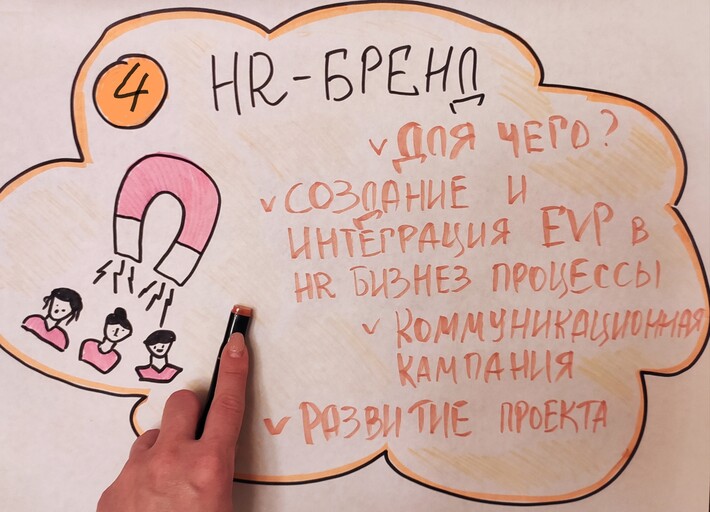 4
HR-БРЕНД
✓ ДЛЯ ЧЕГО?
✓ СОЗДАНИЕ И
ИНТЕГРАЦИЯ EVP В
HR БИЗНЕЗ ПРОЦЕССЫ
✓ КОММУНИКАЦИОННАЯ
КАМПАНИЯ
✓ РАЗВИТИЕ ПРОЕКТА